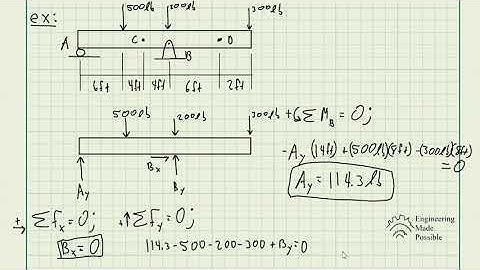 ex:
500lb 200lb 300lb
A C B D
6ft 4ft 4ft 6ft 2ft
500lb 200lb 300lb
+↺ΣM_B = 0;
-A_y (14ft) + (500lb)(8ft) - (300lb)(8ft) = 0
B_x
A_y B_y
A_y = 114.3 lb
+→ Σf_x = 0; +↑Σf_y = 0;
B_x = 0
114.3 - 500 - 200 - 300 + B_y = 0
Engineering
Made
Possible